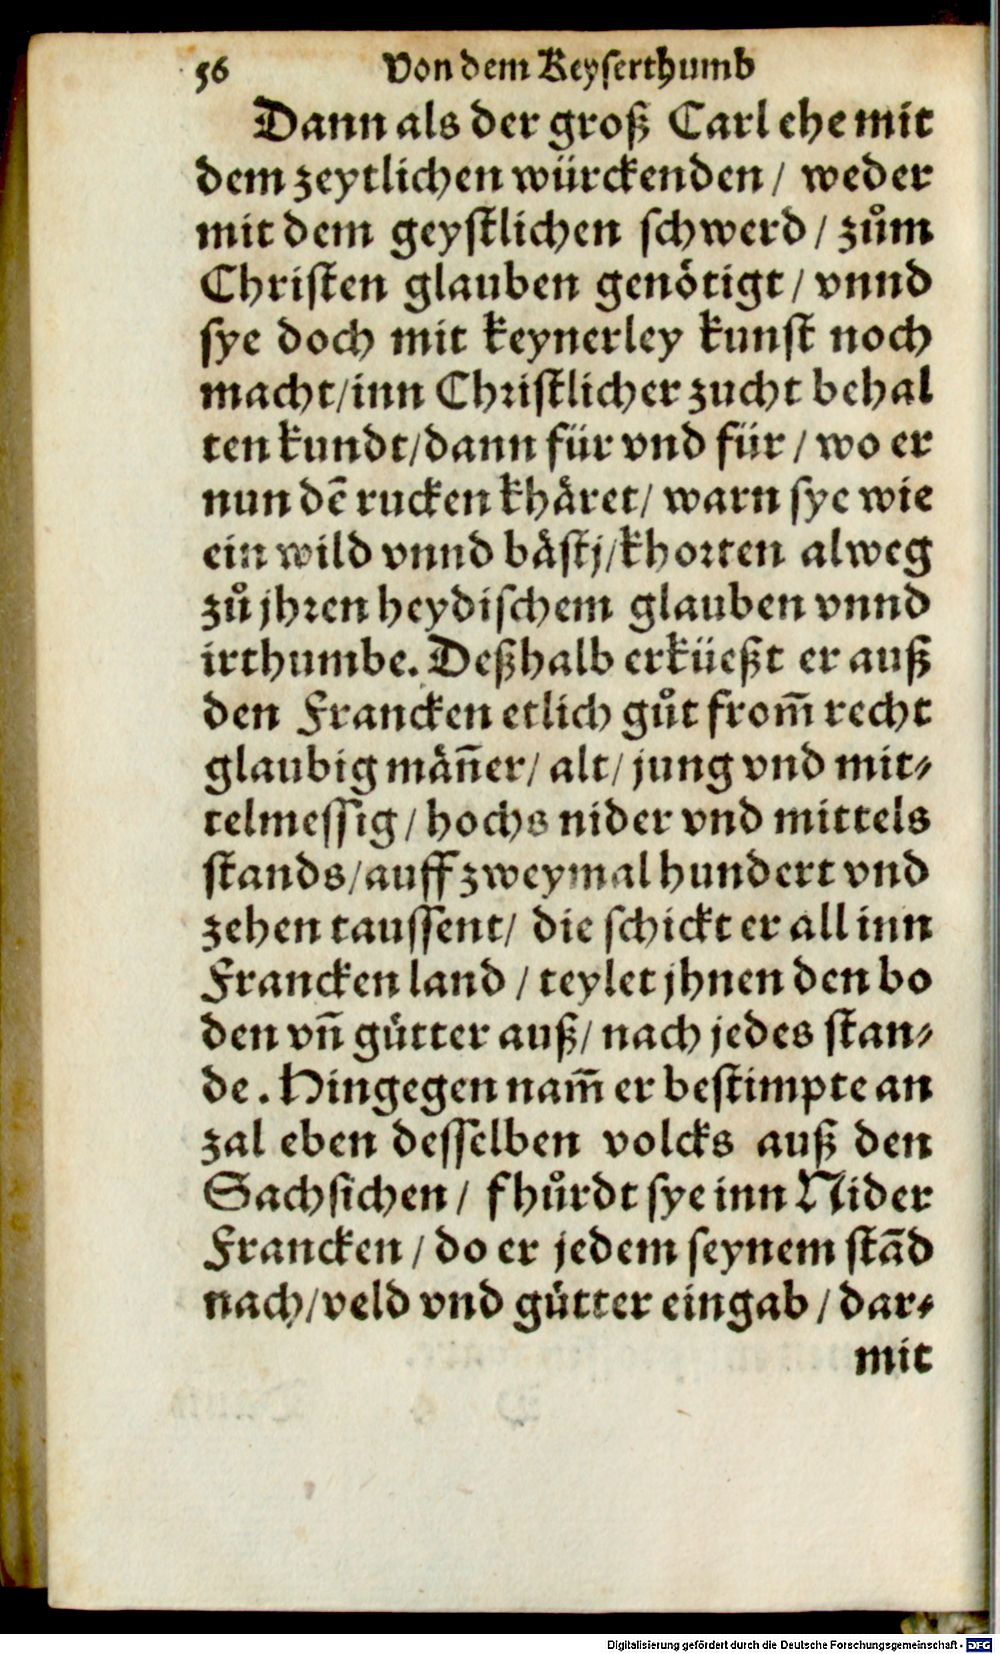 56 Von dem Keyserthumb
Dann als der groß Carl ehe mit
dem zeytlichen würckenden / weder
mit dem geystlichen schwerd / zům
Christen glauben genötigt / vnnd
sye doch mit keynerley kunst noch
macht / inn Christlicher zucht behal
ten kundt / dann für vnd für / wo er
nun dẽ rucken khäret / warn sye wie
ein wild vnnd bästj / khorten alweg
zů jhren heydischem glauben vnnd
irthumbe. Deßhalb erküeßt er auß
den Francken etlich gůt from̃ recht
glaubig mäñer / alt / jung vnd mit⸗
telmessig / hochs nider vnd mittels
stands / auff zweymal hundert vnd
zehen taussent / die schickt er all inn
Francken land / teylet jhnen den bo
den vñ gütter auß / nach jedes stan⸗
de. Hingegen nam̃ er bestimpte an
zal eben desselben volcks auß den
Sachsichen / fhůrdt sye inn Nider
Francken / do er jedem seynem stãd
nach / veld vnd gütter eingab / dar⸗
mit
Digitalisierung gefördert durch die Deutsche Forschungsgemeinschaft - DFG